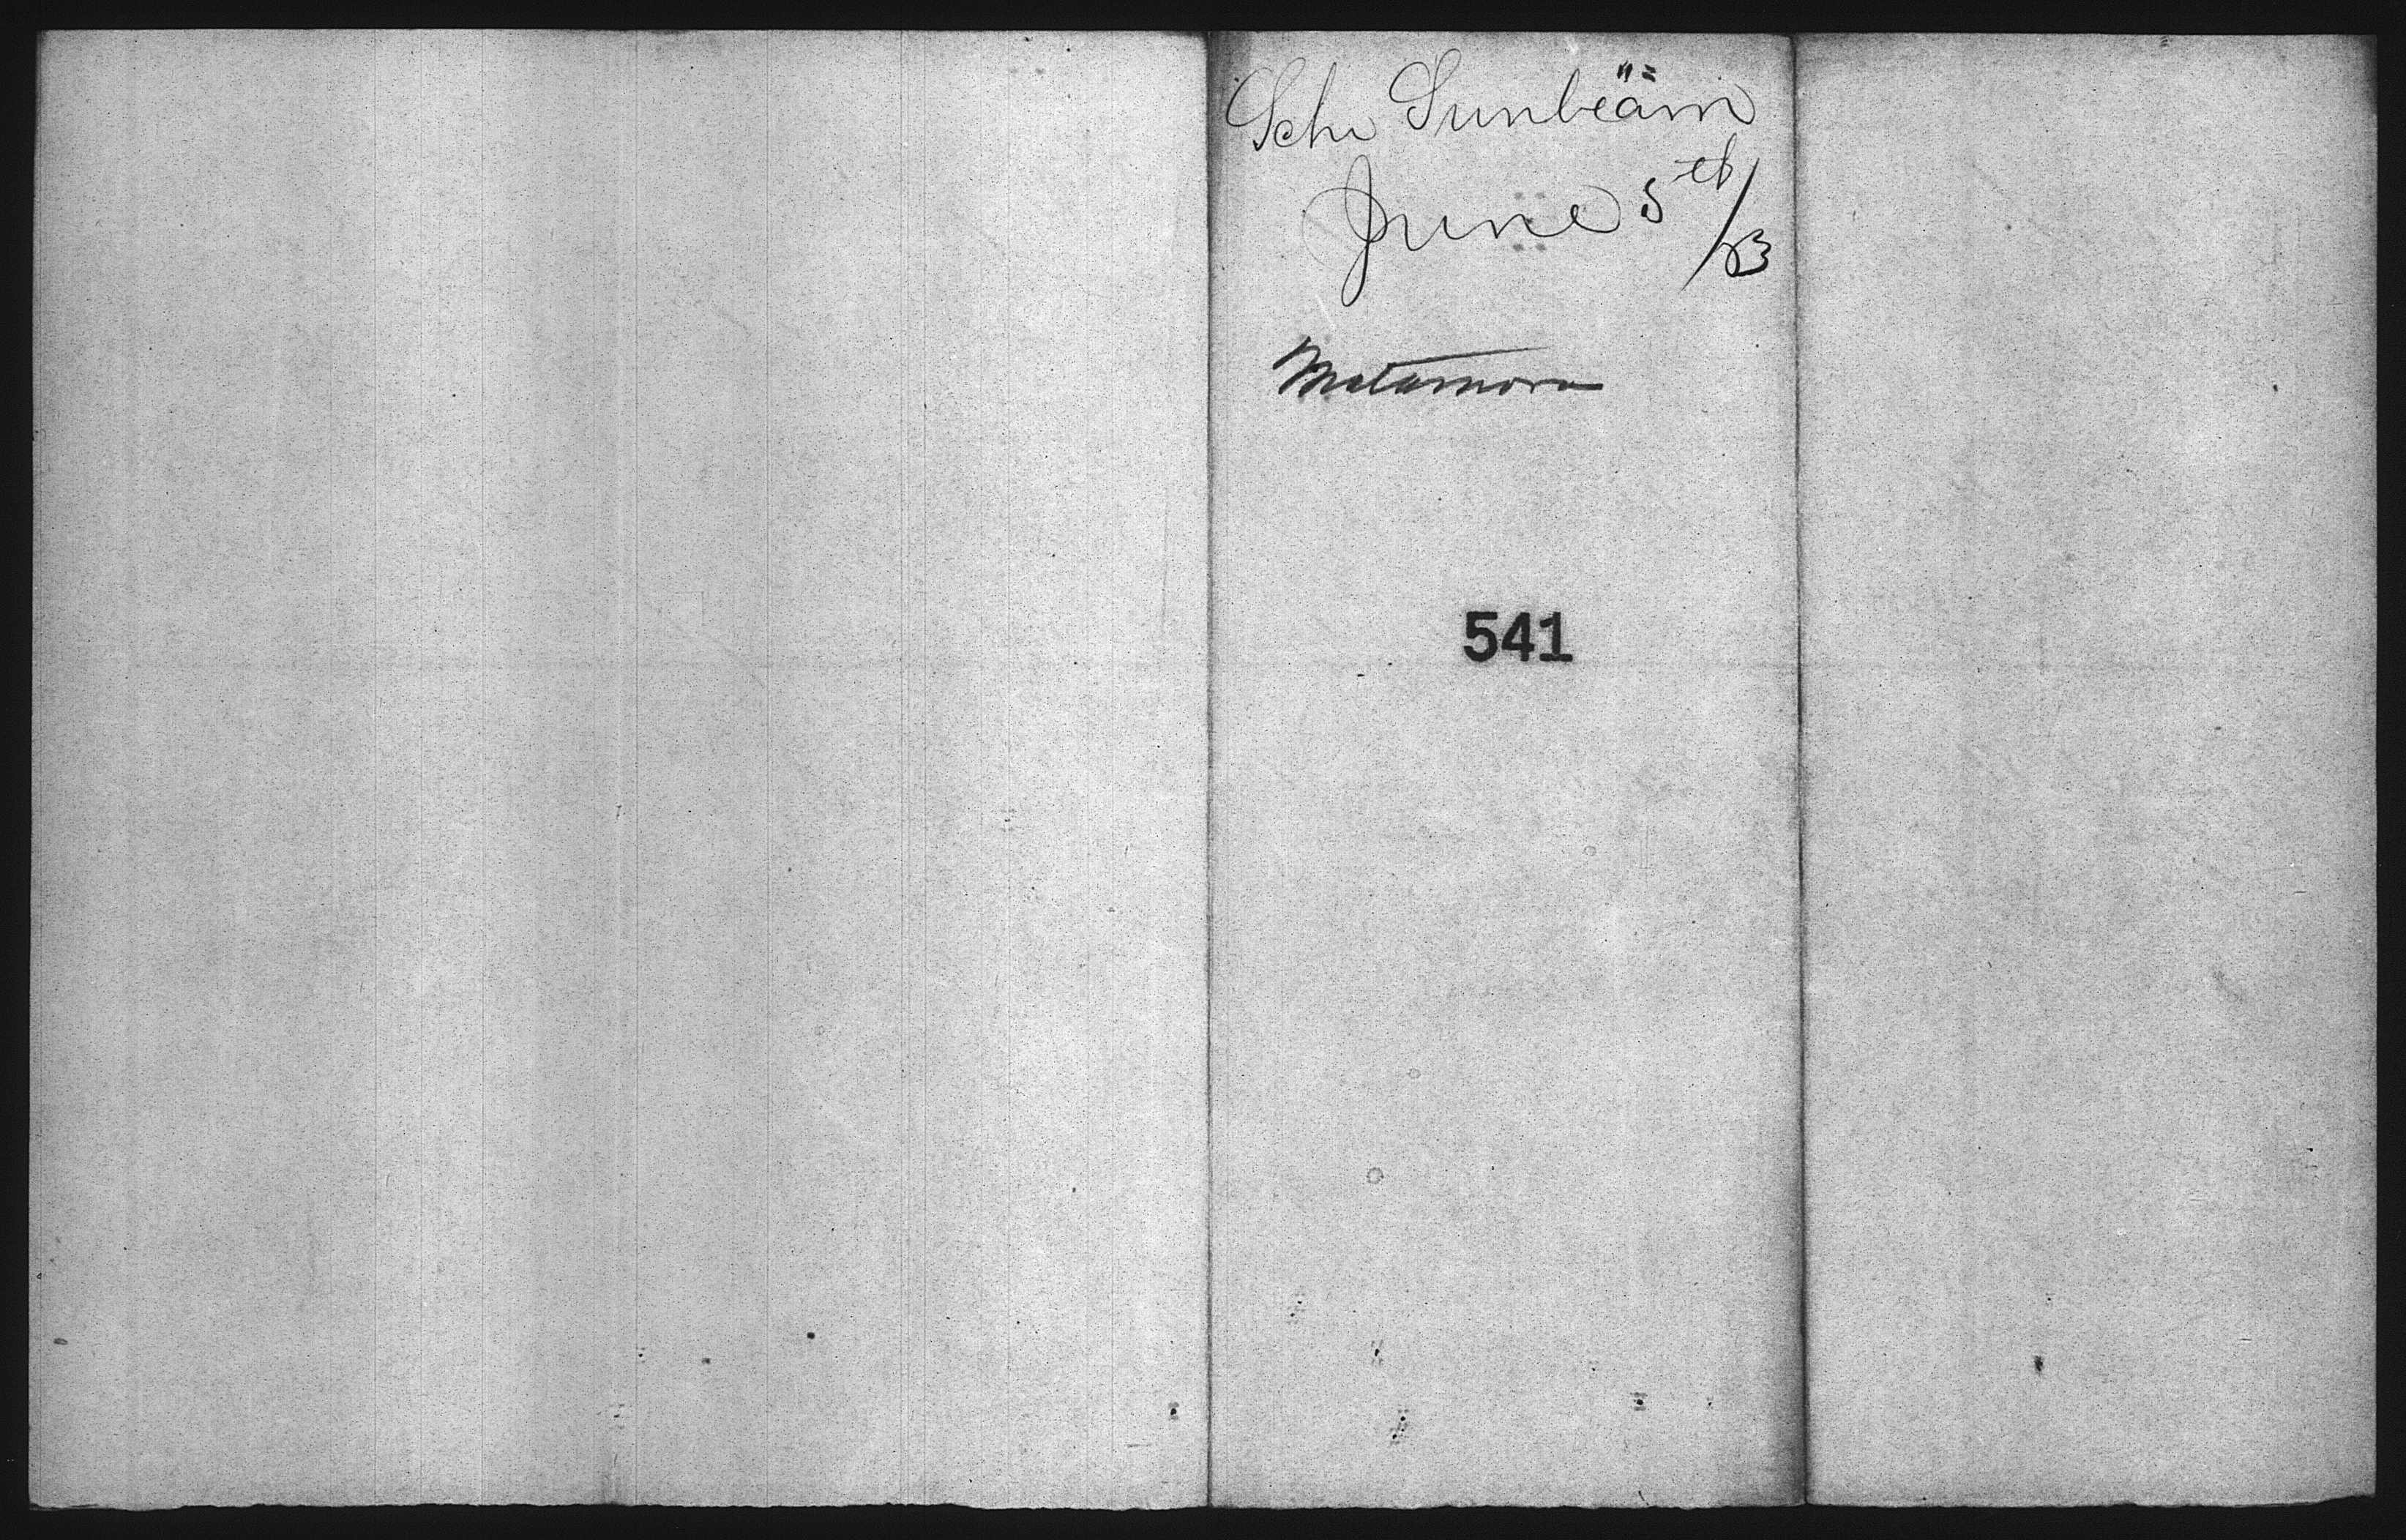 Schr Sunbeam
June 5th/83
Matamora
541